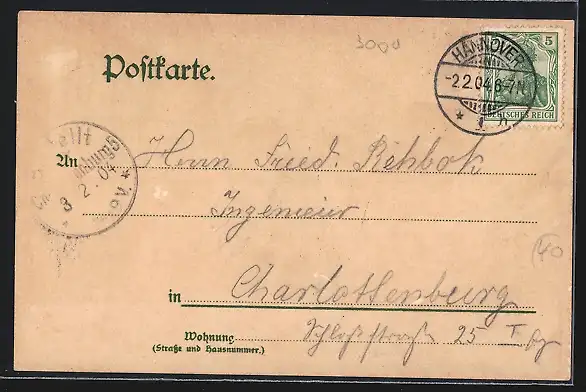 3000
Postkarte.
5
HANNOVER
-2.2.04.6-7N.
DEUTSCHES REICH
3 2.04
An Herrn Fried. Rehbok
Ingenieur
40
in Charlottenburg
Wohnung Schloßstraße 25 I
(Straße und Hausnummer.)